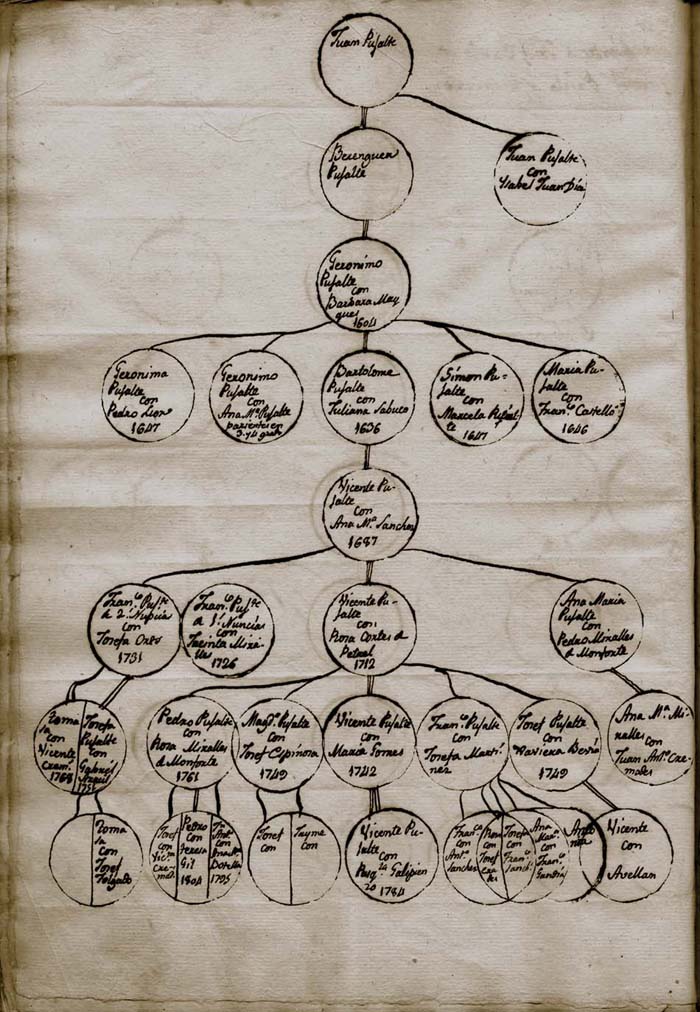 Juan Pujalte
Berenguer
Pujalte
Juan Pujalte
con
Ysabel Juan Dia
Geronimo
Pujalte
con
Barbara May
ques
1604
Geronima
Pujalte
con
Pedro Leon
1647
Geronimo
Pujalte
con
Ana Mª Pujalte
parientes en
3. y 4 grado
Bartolome
Pujalte
con
Juliana Sabuco
1636
Simon Pu-
jalte
con
Marcela Pujal
te
1647
Maria Pu-
jalte
con
Franco Castelló
1646
Vicente Pu-
jalte
con
Ana Mª Sanchez
1687
Franco Pujte
a 2ª Nupcia
con
Josefa
1731
Franco Pujte
a 1ª Nuncias
con
Miralles
1726
Vicente Pu-
jalte
con
Rosa Cortes de
Petrel
1712
Ana Maria
Pujalte
con
Pedro Miralles
de Monforte
Toma
sa
con
Vicente
Josefa
Pujalte
con
Gabriel
Pedro Pujalte
con
Rosa Miralles
de Monforte
1761
Magna Pujalte
con
Josef Espinosa
1749
Vicente Pujalte
con
Maria Gomes
1742
Franco Pujalte
con
Josefa Marti-
nez
Josef Pujalte
con
Xaviera
1749
Ana Mª Mi-
ralles
con
Juan Anto Cre-
mades
Toma
sa
con
Josef
Josef
con
Pedro
con
Teresa
Gil
1804
con
1795
Josef
con
Jayme
con
Vicente Pu-
jalte
con
Galipien
zo 1784
con
Sanchez
Rosa
con
Josef
Josefa
con
Ana
con
Vicente
con
Avellan